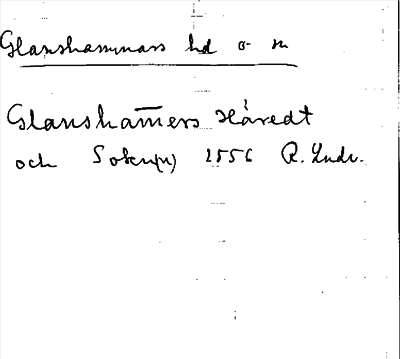 Glanshammars hd o sn
Glansham̄ers Häredt
och Soken(n) 1556 R. Lndr.